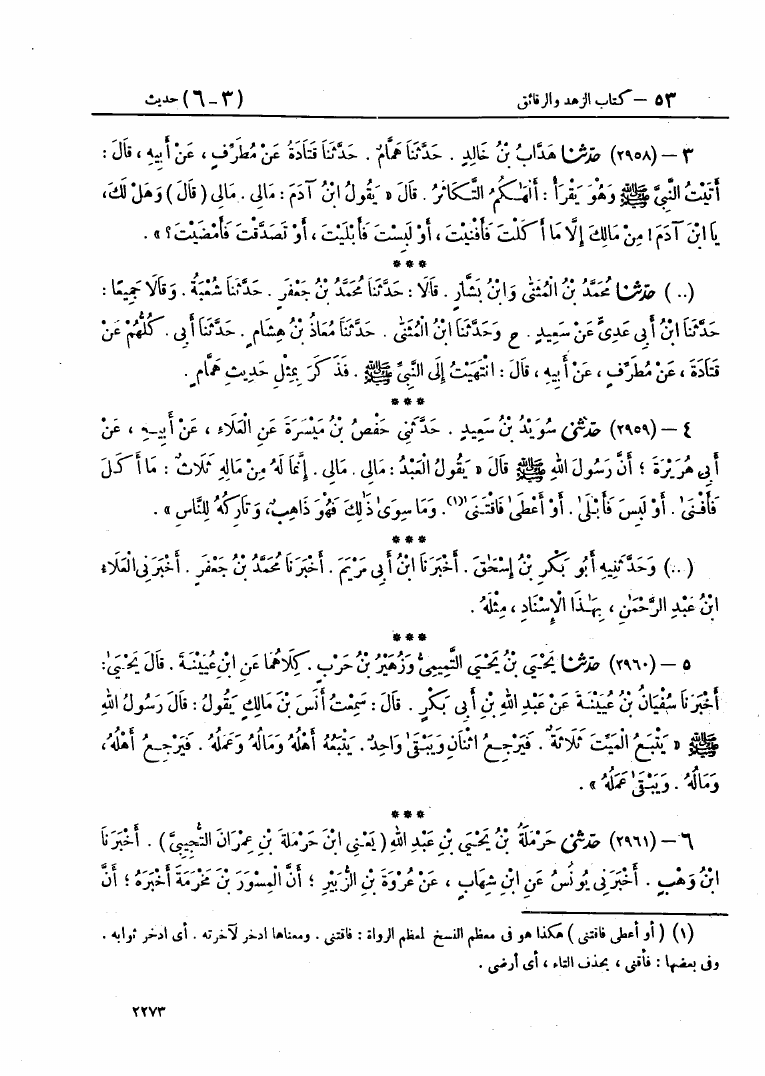 ٥٣ – كتاب الزهد والرقائق (٣-٦) حديث
٣ – (٢٩٥٨) حَدَّثَنَا هَدَّابُ بْنُ خَالِدٍ . حَدَّثَنَا هَمَّامٌ . حَدَّثَنَا قَتَادَةُ عَنْ مُطَرِّفٍ ، عَنْ أَبِيهِ ، قَالَ :
أَتَيْتُ النَّبِيَّ ﷺ وَهُوَ يَقْرَأُ : أَلْهَـٰكُمُ التَّكَاثُرُ . قَالَ « يَقُولُ ابْنُ آدَمَ : مَالِى . مَالِى ( قَالَ ) وَهَلْ لَكَ ،
يَا ابْنَ آدَمَ ! مِنْ مَالِكَ إِلَّا مَا أَكَلْتَ فَأَفْنَيْتَ ، أَوْ لَبِسْتَ فَأَبْلَيْتَ ، أَوْ تَصَدَّقْتَ فَأَمْضَيْتَ ؟ » .
***
(..) حَدَّثَنَا مُحَمَّدُ بْنُ الْمُثَنَّىٰ وَابْنُ بَشَّارٍ . قَالَا : حَدَّثَنَا مُحَمَّدُ بْنُ جَعْفَرٍ . حَدَّثَنَا شُعْبَةُ . وَقَالَا جَمِيعًا :
حَدَّثَنَا ابْنُ أَبِى عَدِىٍّ عَنْ سَعِيدٍ . ح وَحَدَّثَنَا ابْنُ الْمُثَنَّىٰ . حَدَّثَنَا مُعَاذُ بْنُ هِشَامٍ . حَدَّثَنَا أَبِى . كُلُّهُمْ عَنْ
قَتَادَةَ ، عَنْ مُطَرِّفٍ ، عَنْ أَبِيهِ ، قَالَ : انْتَهَيْتُ إِلَى النَّبِىِّ ﷺ . فَذَكَرَ بِمِثْلِ حَدِيثِ هَمَّامٍ .
***
٤ – (٢٩٥٩) حَدَّثَنِى سُوَيْدُ بْنُ سَعِيدٍ . حَدَّثَنِى حَفْصُ بْنُ مَيْسَرَةَ عَنِ الْعَلَاءِ ، عَنْ أَبِيهِ ، عَنْ
أَبِى هُرَيْرَةَ ؛ أَنَّ رَسُولَ اللهِ ﷺ قَالَ « يَقُولُ الْعَبْدُ : مَالِى . مَالِى . إِنَّمَا لَهُ مِنْ مَالِهِ ثَلَاثٌ : مَا أَكَلَ
فَأَفْنَىٰ . أَوْ لَبِسَ فَأَبْلَىٰ . أَوْ أَعْطَىٰ فَاقْتَنَىٰ(١) . وَمَا سِوَىٰ ذَٰلِكَ فَهُوَ ذَاهِبٌ ، وَتَارِكُهُ لِلنَّاسِ » .
***
(..) وَحَدَّثَنِيهِ أَبُو بَكْرِ بْنُ إِسْحَـٰقَ . أَخْبَرَنَا ابْنُ أَبِى مَرْيَمَ . أَخْبَرَنَا مُحَمَّدُ بْنُ جَعْفَرٍ . أَخْبَرَنِى الْعَلَاءُ
ابْنُ عَبْدِ الرَّحْمَٰنِ ، بِهَـٰذَا الْإِسْنَادِ ، مِثْلَهُ .
***
٥ – (٢٩٦٠) حَدَّثَنَا يَحْيَىٰ بْنُ يَحْيَىٰ التَّمِيمِىُّ وَزُهَيْرُ بْنُ حَرْبٍ . كِلَاهُمَا عَنِ ابْنِ عُيَيْنَةَ . قَالَ يَحْيَىٰ :
أَخْبَرَنَا سُفْيَانُ بْنُ عُيَيْنَةَ عَنْ عَبْدِ اللهِ بْنِ أَبِى بَكْرٍ . قَالَ : سَمِعْتُ أَنَسَ بْنَ مَالِكٍ يَقُولُ : قَالَ رَسُولُ اللهِ
ﷺ « يَتْبَعُ الْمَيِّتَ ثَلَاثَةٌ . فَيَرْجِعُ اثْنَانِ وَيَبْقَىٰ وَاحِدٌ . يَتْبَعُهُ أَهْلُهُ وَمَالُهُ وَعَمَلُهُ . فَيَرْجِعُ أَهْلُهُ ،
وَمَالُهُ . وَيَبْقَىٰ عَمَلُهُ » .
***
٦ – (٢٩٦١) حَدَّثَنِى حَرْمَلَةُ بْنُ يَحْيَىٰ بْنِ عَبْدِ اللهِ ( يَعْنِى ابْنَ حَرْمَلَةَ بْنِ عِمْرَانَ التُّجِيبِىَّ ) . أَخْبَرَنَا
ابْنُ وَهْبٍ . أَخْبَرَنِى يُونُسُ عَنِ ابْنِ شِهَابٍ ، عَنْ عُرْوَةَ بْنِ الزُّبَيْرِ ؛ أَنَّ الْمِسْوَرَ بْنَ مَخْرَمَةَ أَخْبَرَهُ ؛ أَنَّ
(١) ( أو أعطى فاقتنى ) هكذا هو فى معظم النسخ لمعظم الرواة : فاقتنى . ومعناها ادخر لآخرته . أى ادخر ثوابه .
وفى بعضها : فأقنى ، بحذف التاء ، أى أرضى .
٢٢٧٣